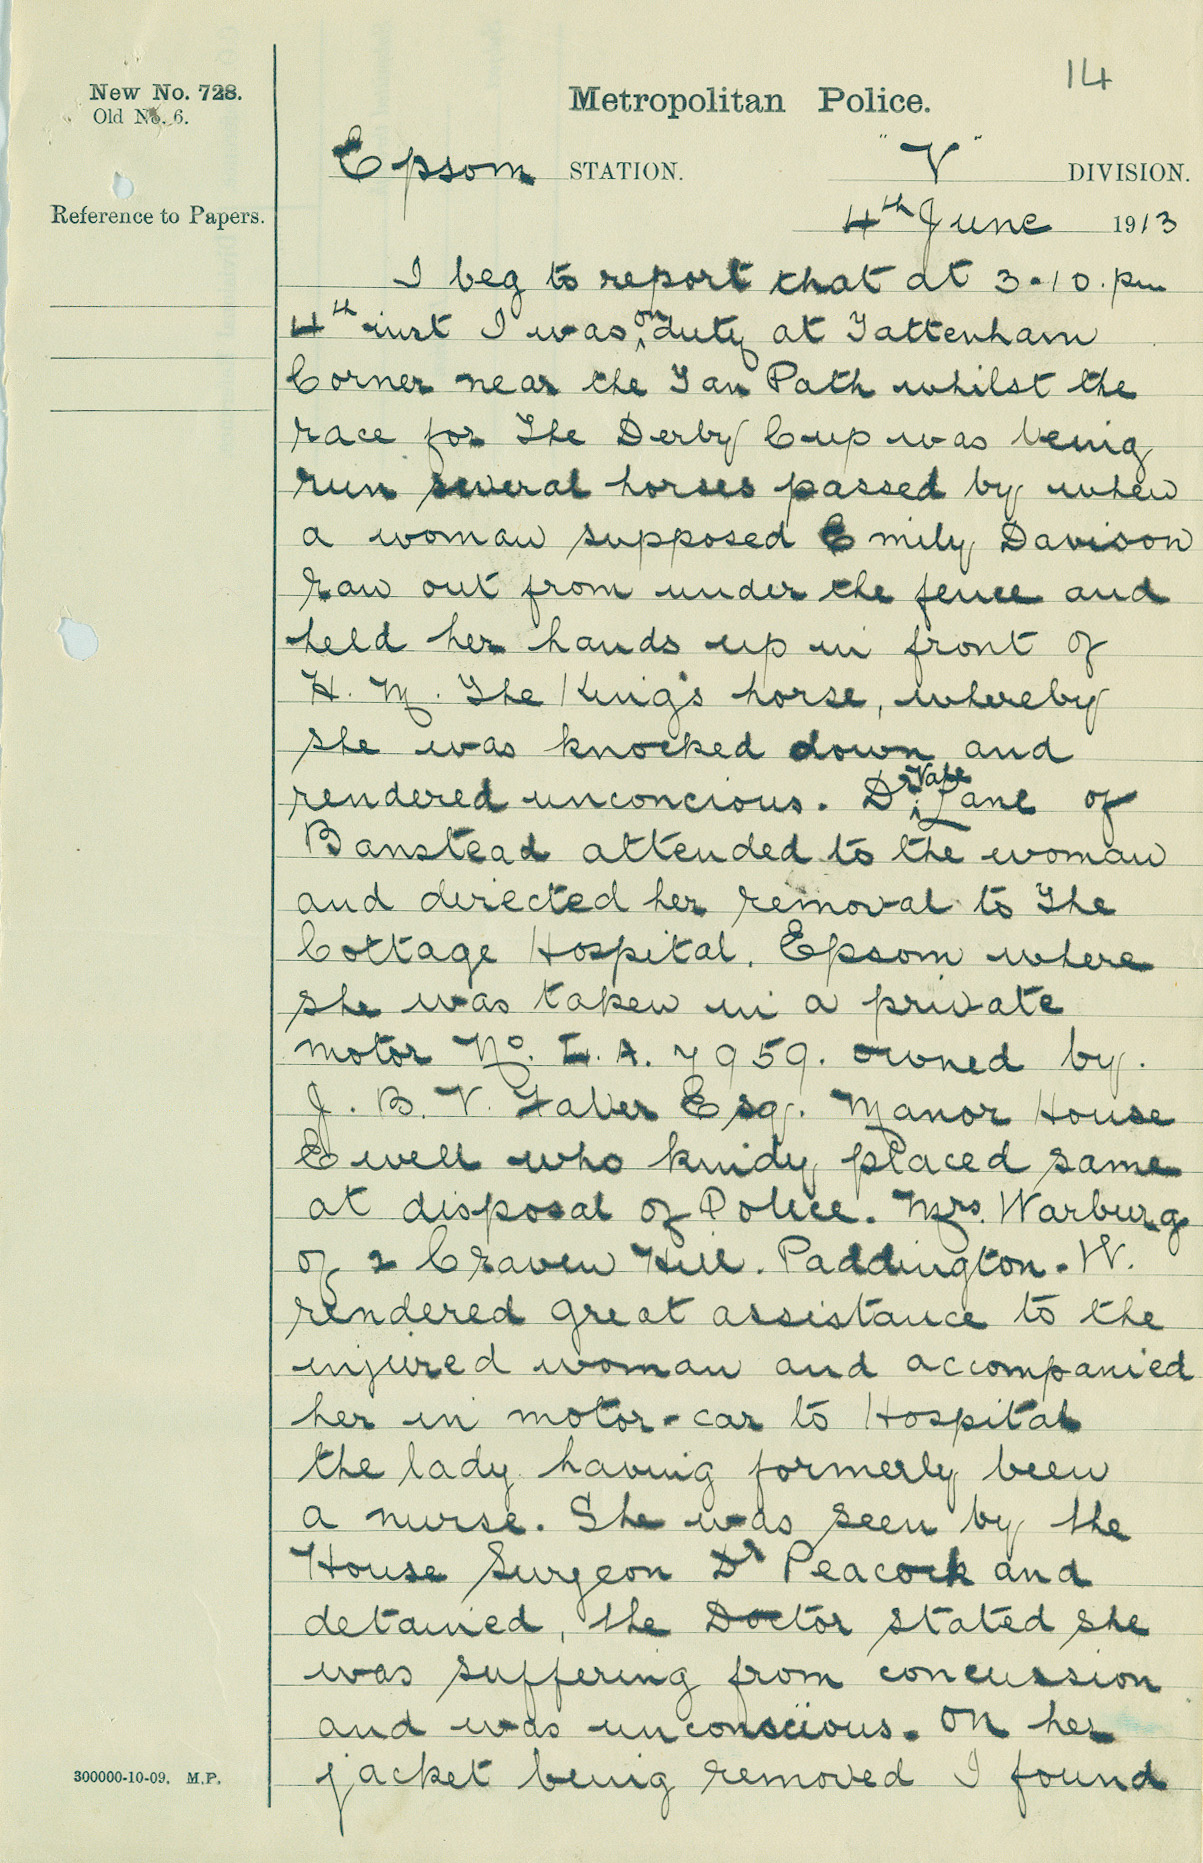 14
New No. 728.
Old No. 6.
Metropolitan Police.
Epsom STATION. "V" DIVISION.
Reference to Papers.
4th June 1913
I beg to report that at 3.10. pm
4th inst I was on duty at Tattenham
Corner near the Tan Path whilst the
race for The Derby Cup was being
run several horses passed by when
a woman supposed Emily Davison
ran out from under the fence and
held her hands up in front of
H. M. The King's horse, whereby
she was knocked down and
rendered unconcious. Dr. Vale Lane of
Banstead attended to the woman
and directed her removal to The
Cottage Hospital, Epsom where
she was taken in a private
motor No. L. A. 7959. owned by.
J. B. V. Faber Esq. Manor House
Ewell who kindy placed same
at disposal of Police. Mrs. Warburg
of 2 Craven Hill. Paddington. W.
rendered great assistance to the
injured woman and accompanied
her in motor-car to Hospital
the lady having formerly been
a nurse. She was seen by the
House Surgeon Dr Peacock and
detained, the Doctor stated she
was suffering from concussion
and was unconscious. On her
jacket being removed I found
300000-10-09. M.P.